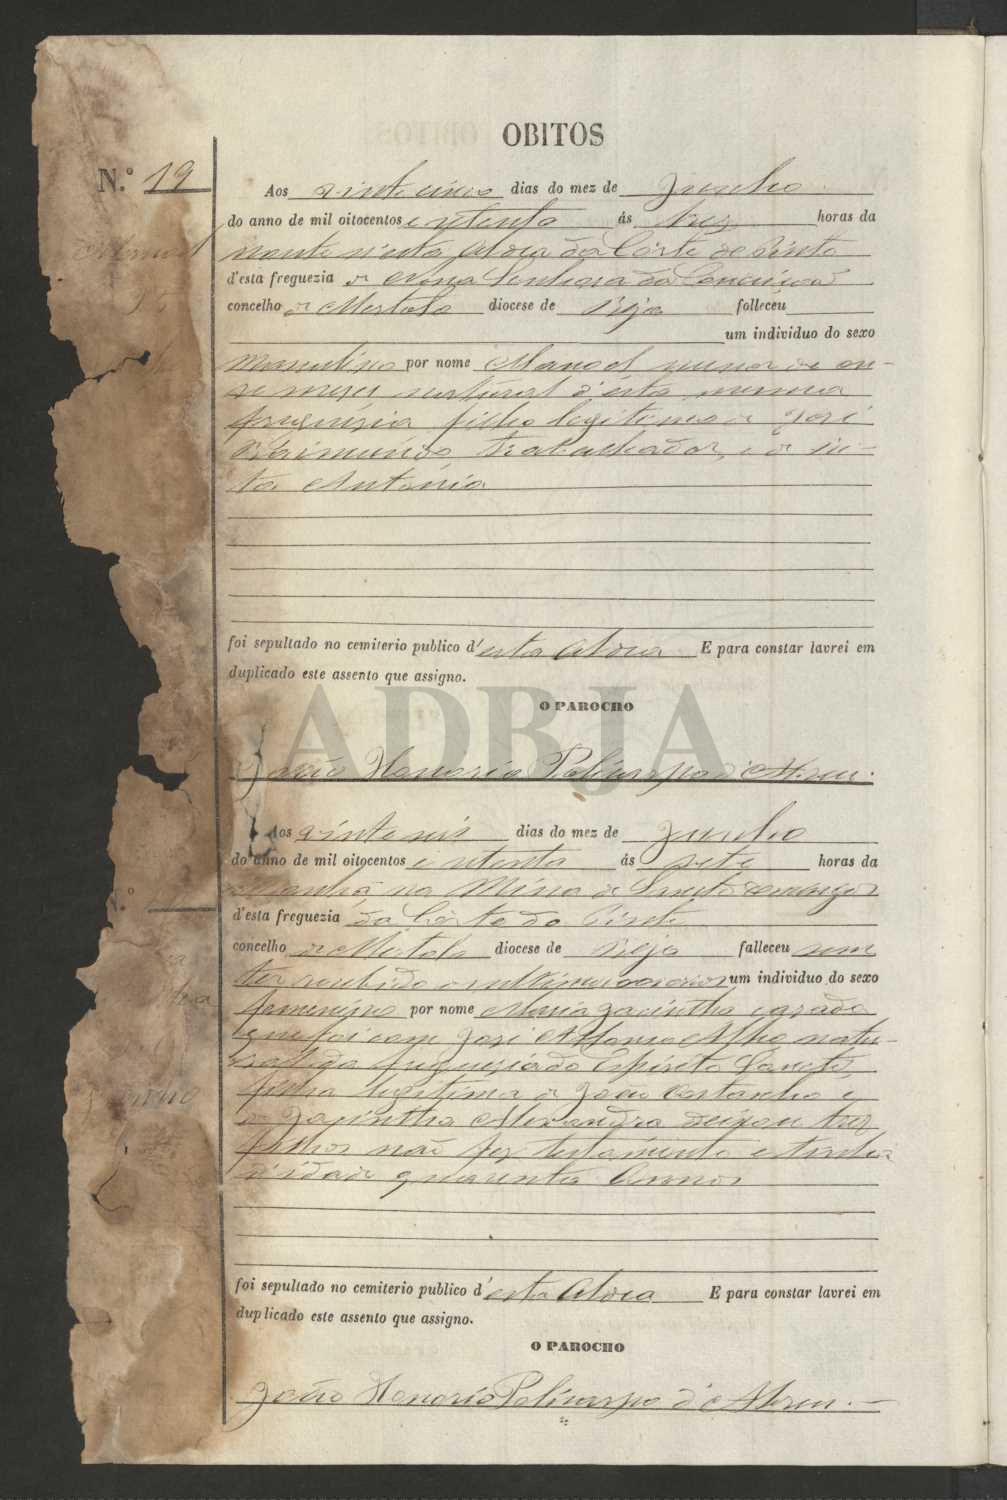 OBITOS
N.º 19
Aos vinte cinco dias do mez de Junho
do anno de mil oitocentos e setenta ás trez horas da
noute n'esta Aldea da Côrte do Pinto
d'esta freguezia de Nossa Senhora da Conceicao
concelho de Mertola diocese de Beja falleceu
um individuo do sexo
Masculino por nome Manoel menor de on-
ze mezes natural d'esta mesma
freguezia filho legitimo de José
Raimundo, trabalhador, e de
Antonia
foi sepultado no cemiterio publico d'esta Aldea E para constar lavrei em
duplicado este assento que assigno.
O PAROCHO
João Honorio Policarpo d'Abreu.
Aos vinte seis dias do mez de Junho
do anno de mil oitocentos e setenta ás sete horas da
Manhã na Mina de S. Domingos
d'esta freguezia da Côrte do Pinto
concelho de Mertola diocese de Beja falleceu sem
ter recebido um individuo do sexo
femenino por nome Maria Jacintha cazada
que foi com José natu-
ral da freguezia do Espirito Santo
filha legitima de João e
de Jacintha Alexandra deixou trez
filhos não fez testamento e tinha
d'idade quarenta annos
foi sepultado no cemiterio publico d'esta Aldea E para constar lavrei em
duplicado este assento que assigno.
O PAROCHO
João Honorio Policarpo d'Abreu.
ADBJA